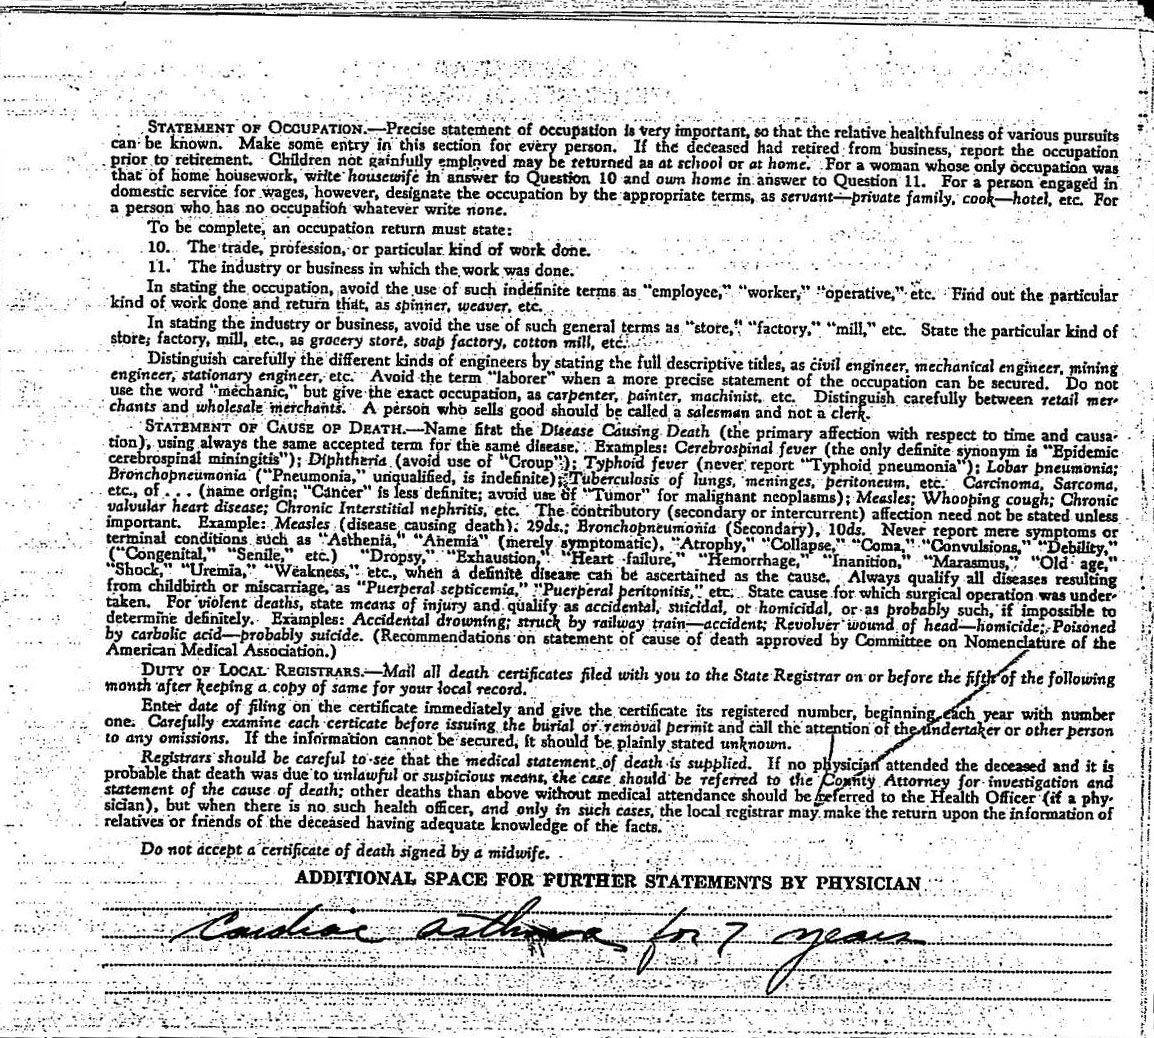 STATEMENT OF OCCUPATION.—Precise statement of occupation is very important, so that the relative healthfulness of various pursuits
can be known. Make some entry in this section for every person. If the deceased had retired from business, report the occupation
prior to retirement. Children not gainfully employed may be returned as at school or at home. For a woman whose only occupation was
that of home housework, write housewife in answer to Question 10 and own home in answer to Question 11. For a person engaged in
domestic service for wages, however, designate the occupation by the appropriate terms, as servant—private family, cook—hotel, etc. For
a person who has no occupation whatever write none.
To be complete, an occupation return must state:
10. The trade, profession, or particular kind of work done.
11. The industry or business in which the work was done.
In stating the occupation, avoid the use of such indefinite terms as "employee," "worker," "operative," etc. Find out the particular
kind of work done and return that, as spinner, weaver, etc.
In stating the industry or business, avoid the use of such general terms as "store," "factory," "mill," etc. State the particular kind of
store, factory, mill, etc., as grocery store, soap factory, cotton mill, etc.
Distinguish carefully the different kinds of engineers by stating the full descriptive titles, as civil engineer, mechanical engineer, mining
engineer, stationary engineer, etc. Avoid the term "laborer" when a more precise statement of the occupation can be secured. Do not
use the word "mechanic," but give the exact occupation, as carpenter, painter, machinist, etc. Distinguish carefully between retail mer-
chants and wholesale merchants. A person who sells good should be called a salesman and not a clerk.
STATEMENT OF CAUSE OF DEATH.—Name first the Disease Causing Death (the primary affection with respect to time and causa-
tion), using always the same accepted term for the same disease. Examples: Cerebrospinal fever (the only definite synonym is "Epidemic
cerebrospinal miningitis"); Diphtheria (avoid use of "Croup"); Typhoid fever (never report "Typhoid pneumonia"); Lobar pneumonia;
Bronchopneumonia ("Pneumonia," unqualified, is indefinite); Tuberculosis of lungs, meninges, peritoneum, etc. Carcinoma, Sarcoma,
etc., of . . . (name origin; "Cancer" is less definite; avoid use of "Tumor" for malignant neoplasms); Measles; Whooping cough; Chronic
valvular heart disease; Chronic Interstitial nephritis, etc. The contributory (secondary or intercurrent) affection need not be stated unless
important. Example: Measles (disease causing death). 29ds.; Bronchopneumonia (Secondary), 10ds. Never report mere symptoms or
terminal conditions such as "Asthenia," "Anemia" (merely symptomatic), "Atrophy," "Collapse," "Coma," "Convulsions," "Debility,"
("Congenital," "Senile," etc.) "Dropsy," "Exhaustion," "Heart failure," "Hemorrhage," "Inanition," "Marasmus," "Old age,"
"Shock," "Uremia," "Weakness," etc., when a definite disease can be ascertained as the cause. Always qualify all diseases resulting
from childbirth or miscarriage, as "Puerperal septicemia," "Puerperal peritonitis," etc. State cause for which surgical operation was under-
taken. For violent deaths, state means of injury and qualify as accidental, suicidal, or homicidal, or as probably such, if impossible to
determine definitely. Examples: Accidental drowning; struck by railway train—accident; Revolver wound of head—homicide; Poisoned
by carbolic acid—probably suicide. (Recommendations on statement of cause of death approved by Committee on Nomenclature of the
American Medical Association.)
DUTY OF LOCAL REGISTRARS.—Mail all death certificates filed with you to the State Registrar on or before the fifth of the following
month after keeping a copy of same for your local record.
Enter date of filing on the certificate immediately and give the certificate its registered number, beginning each year with number
one. Carefully examine each certicate before issuing the burial or removal permit and call the attention of the undertaker or other person
to any omissions. If the information cannot be secured, it should be plainly stated unknown.
Registrars should be careful to see that the medical statement of death is supplied. If no physician attended the deceased and it is
probable that death was due to unlawful or suspicious means, the case should be referred to the County Attorney for investigation and
statement of the cause of death; other deaths than above without medical attendance should be referred to the Health Officer (if a phy-
sician), but when there is no such health officer, and only in such cases, the local registrar may make the return upon the information of
relatives or friends of the deceased having adequate knowledge of the facts.
Do not accept a certificate of death signed by a midwife.
ADDITIONAL SPACE FOR FURTHER STATEMENTS BY PHYSICIAN
Cardiac asthma for 7 years